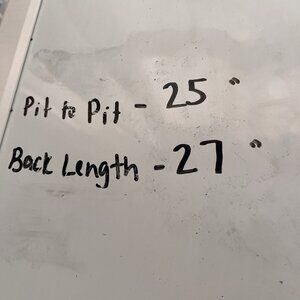 Pit to Pit - 25"
Back Length - 27"